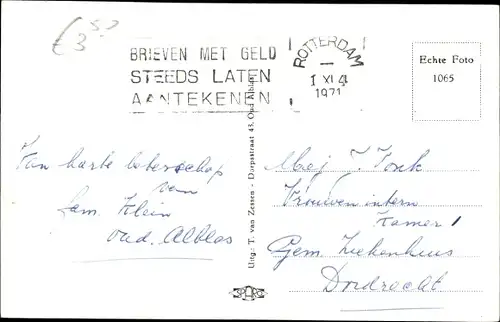 € 3,50
BRIEVEN MET GELD
STEEDS LATEN
AANTEKENEN
ROTTERDAM
1 XI 4
1971
Echte Foto
1065
Uitg: T. van Zessen - Dorpsstraat 43, Oud Alblas
Van harte beterschap
van
fam. Klein
Oud. Alblas
Mej J.
Vrouwen intern
Kamer 1
Gem. Ziekenhuis
Dordrecht